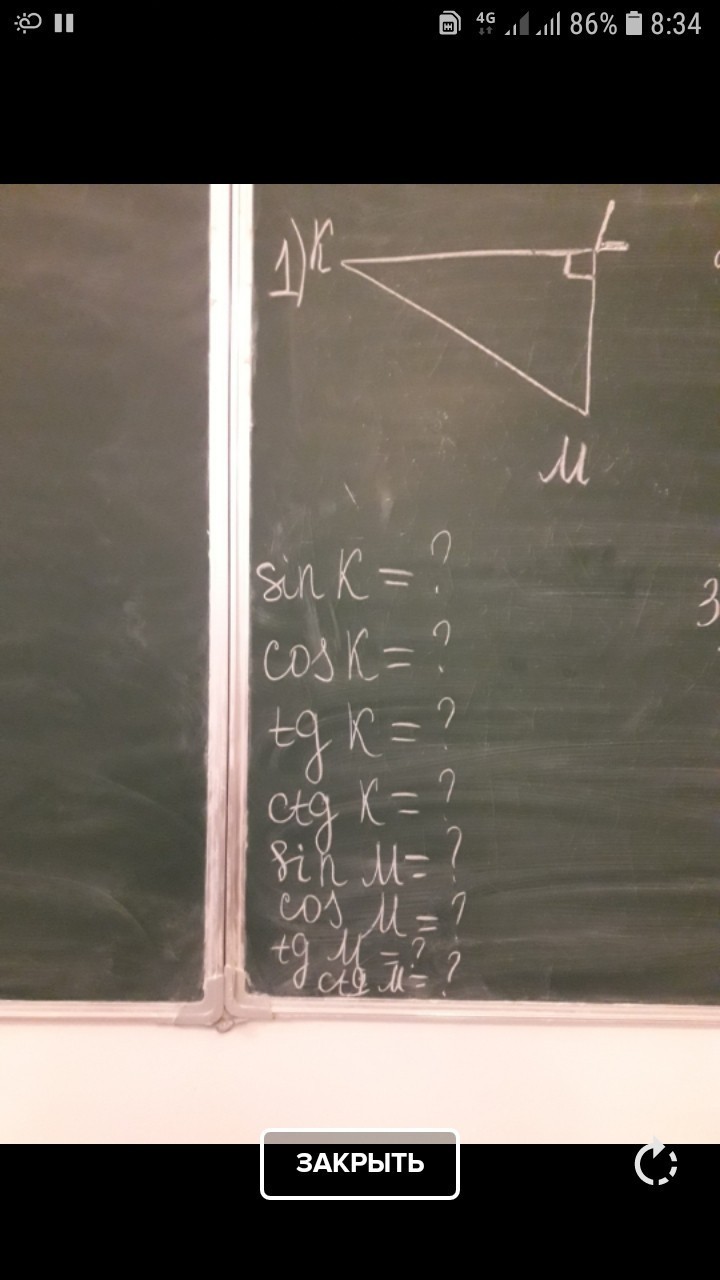 4G 86% 8:34
1) K L
M
sin K = ?
cos K = ?
tg K = ?
ctg K = ?
sin M = ?
cos M = ?
tg M = ?
ctg M = ?
3
ЗАКРЫТЬ